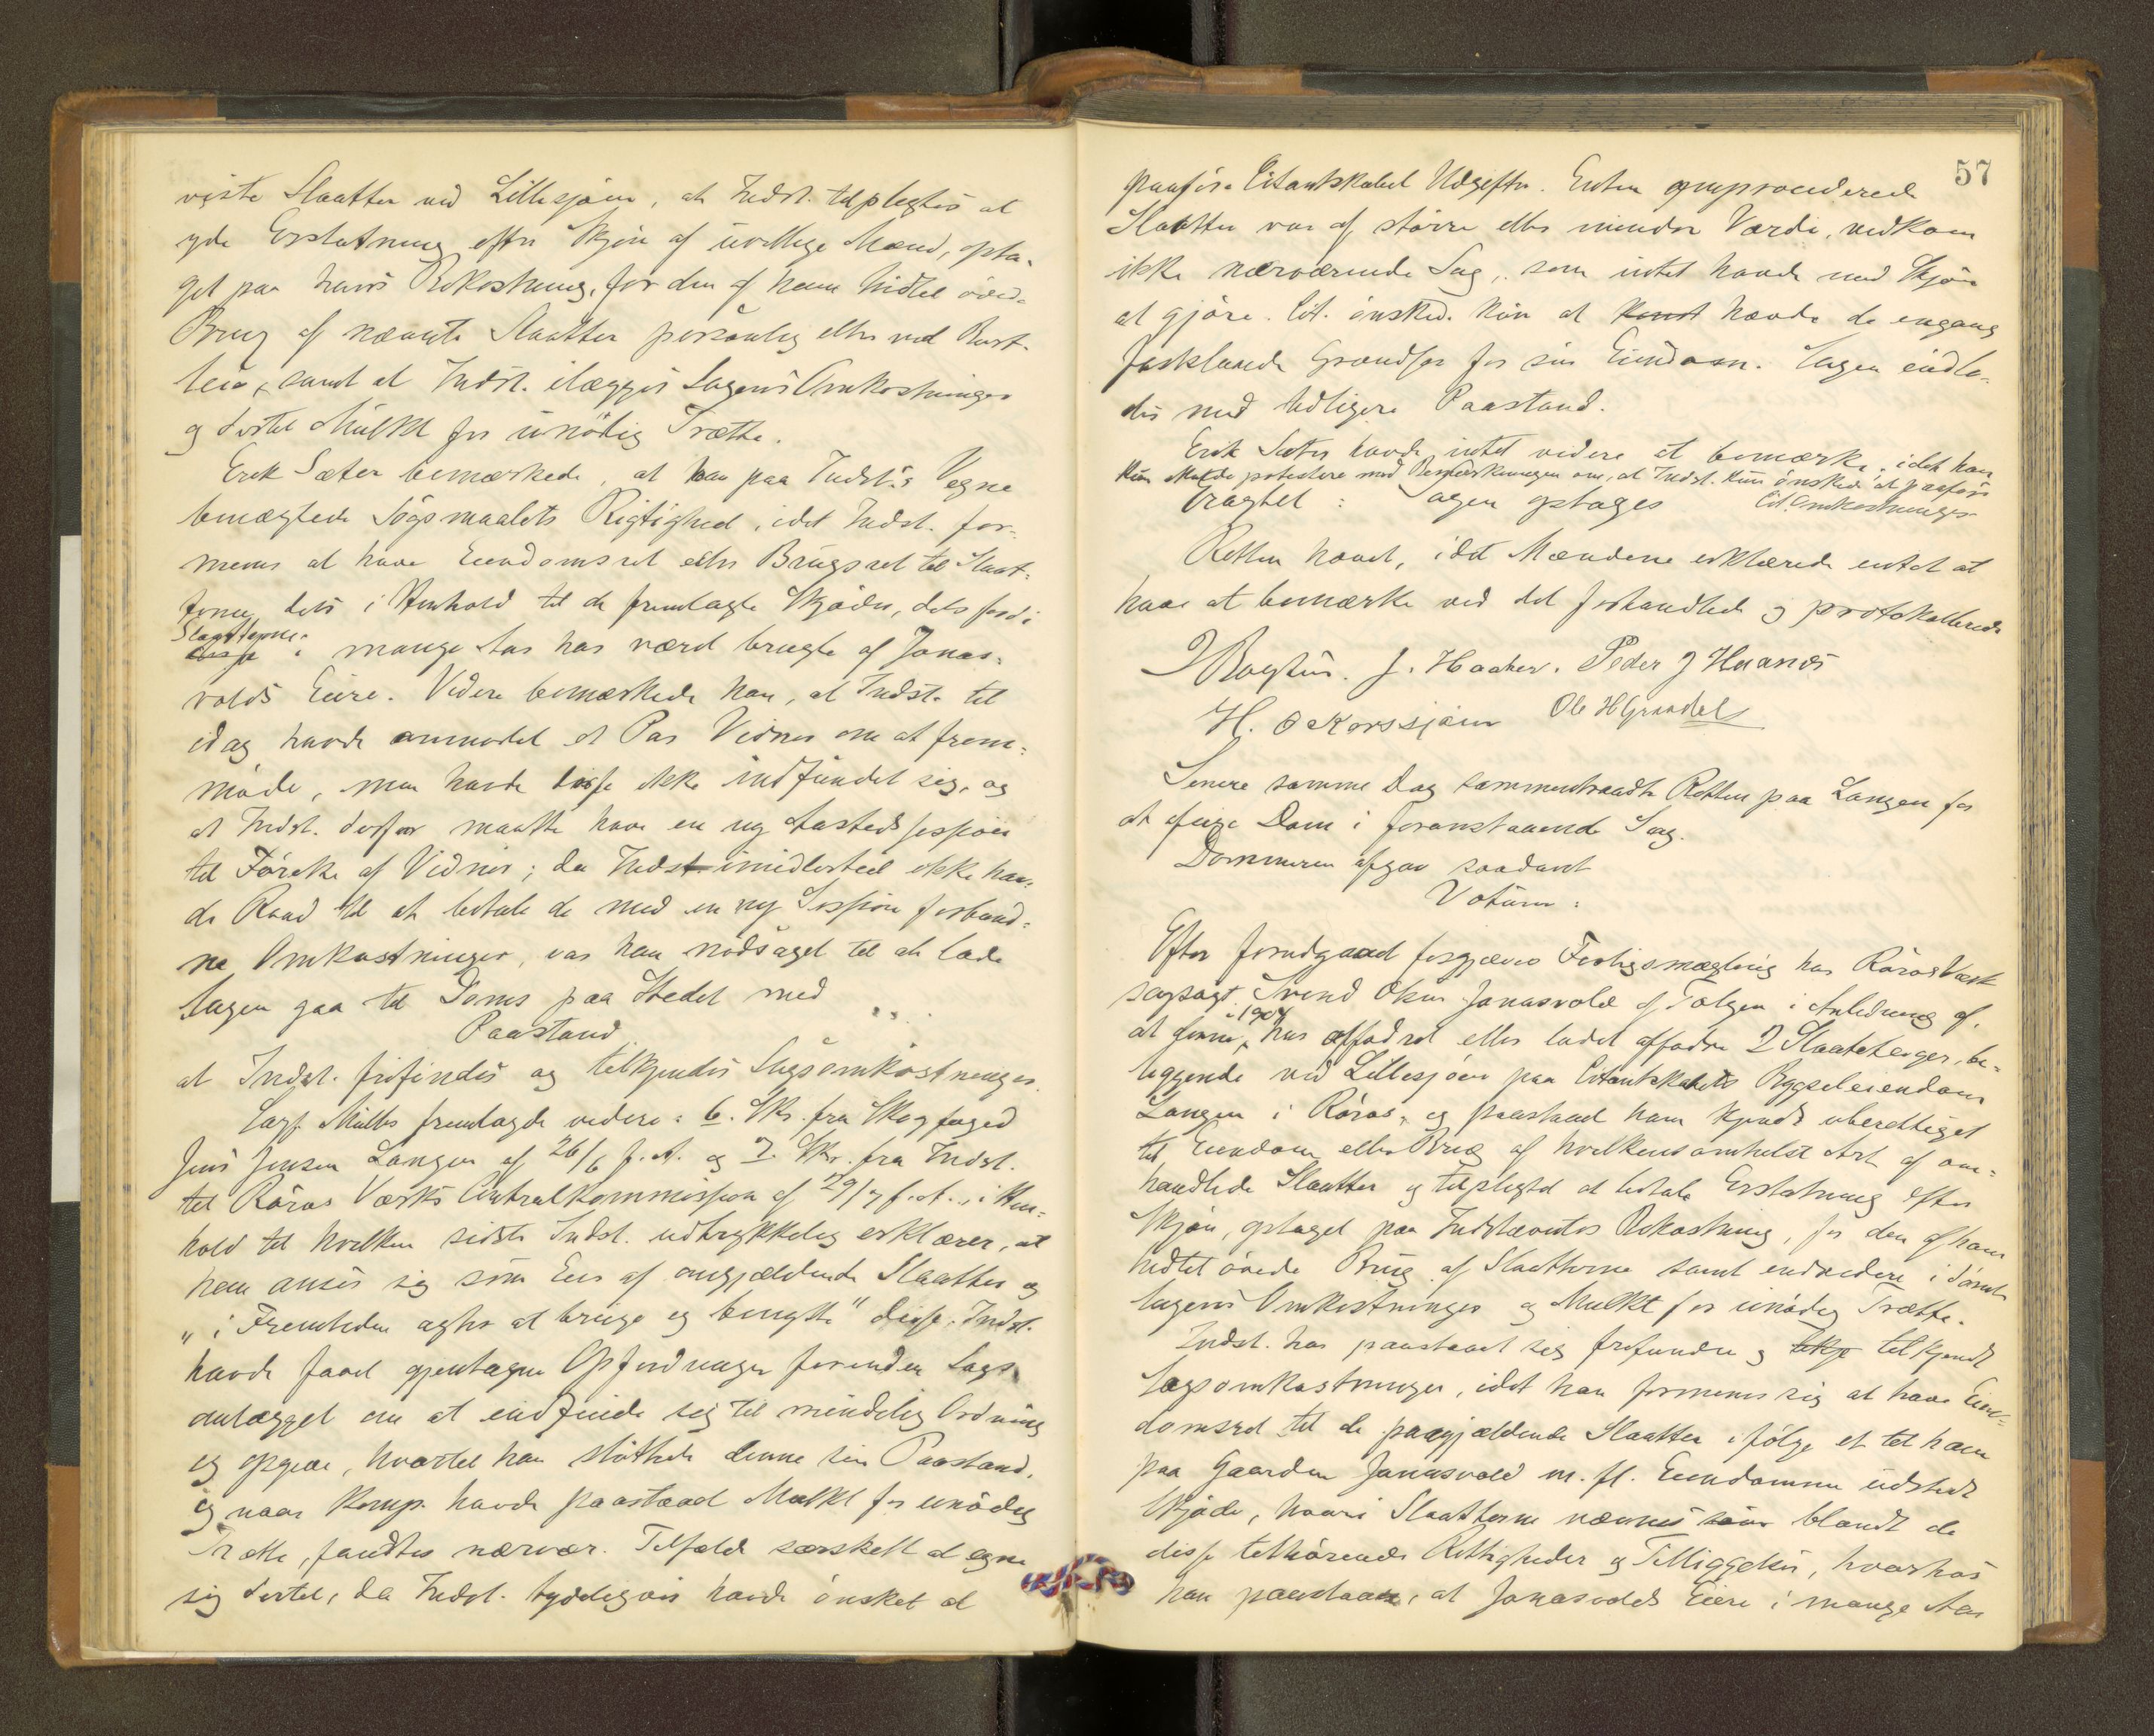 viste Slaatter ved Lillesjøen, at Indst. tilpligtes at
yde Erstatning efter Skjøn af uvillige Mænd, opta-
get paa hans Bekostning, for den af ham hidtil øvede
Brug af nævnte Slaatter personlig eller ved Bort-
leie, samt at Indst. ilægges Sagens Omkostninger
og dertil Mulkt for unødig Trætte.
Erik Sæter bemærkede, at han paa Indst.s Vegne
benægtede Søgsmaalets Rigtighed, idet Indst. for-
mener at have Eiendomsret eller Brugsret til Slaat-
terne, dels i Henhold til de fremlagte Skjøder, dels fordi
Slaatterne
i mange Aar har været brugte af Jonas-
volds Eiere. Videre bemærkede han, at Indst. til
idag havde anmodet et Par Vidner om at frem-
møde, men havde disse ikke indfundet sig, og
at Indst. derfor maatte have en ny Aastedssession
til Førelse af Vidner; da Indst. imidlertid ikke hav-
de Raad til at betale de med en ny Session forbund-
ne Omkostninger, var han nødsaget til at lade
Sagen gaa til Doms paa Stedet med
Paastand
at Indst. frifindes og tilkjendes Sagsomkostninger.
Sagf. Müller fremlagde videre: 6. Skr. fra Skogfoged
Jens Jensen Langen af 26/6 f. A. og 7. Skr. fra Indst.
til Røros Værks Centralkommission af 29/7 f. A., i Hen-
hold til hvilken sidste Indst. udtrykkelig erklærer, at
han anser sig som Eier af omgjældende Slaatter og
"i Fremtiden agter at bruge og benytte" disse. Indst.
havde faaet gjentagne Opfordringer forinden Sags-
anlægget om at indfinde sig til mindelig Ordning
og opgjøre, hvortil han støttede denne sin Paastand,
og naar Komp. havde paastaaet Mulkt for unødig
Trætte, fandtes nærvær. Tilfælde særskilt at egne
sig dertil, da Indst. tydeligvis havde ønsket at
57
paaføre Citantskabet Udgifter. Enten omprocederede
Slaatter var af større eller mindre Værdi, vedkom
ikke nærværende Sag, som intet havde med Skjøn
at gjøre. Cit. ønsked. kun at hævde de engang
fastslaaede Grændser for sin Eiendom. Sagen indla-
des med tidligere Paastand.
Erik Sæter havde intet videre at bemærke, idet han
kun maatte protestere mod Bemærkningen om, at Indst. kun ønskede at paaføre
Cit. Omkostninger
Eragtet: Sagen optages
Retten hævet, idet Mændene erklærede intet at
have at bemærke ved det forhandlede og protokollerede
J. Haaker. Peder J Haanæs
H. O Korssjøen Ole H Graadal
Senere samme Dag sammentraadte Retten paa Langen for
at afsige Dom i foranstaaende Sag.
Dommeren afgav saadant
Votum:
Efter forudgaaed forgjæves Forligsmægling har Røros Værk
sagsøgt Svend Olsen Jonasvold af Tolgen i Anledning af,
at denne i 1907 har affodret eller ladet affodre 2 Slaateteiger, be-
liggende ved Lillesjøen paa Citantskabets Bygseleiendom
Langen i Røros, og paastaaet ham kjendt uberettiget
til Eiendom eller Brug af hvilkensomhelst Art af om-
handlede Slaatter og tilpligtet at betale Erstatning efter
Skjøn, optaget paa Indstævntes Bekostning, for den af ham
hidtil øvede Brug af Slaatterne samt endvidere idømt
Sagens Omkostninger og Mulkt for unødig Trætte.
Indst. har paastaaet sig frifunden og tilkjendt
Sagsomkostninger, idet han formener sig at have Eien-
domsret til de paagjældende Slaatter ifølge et til ham
paa Gaarden Jonasvold m. fl. Eiendomme udstedt
Skjøde, hvori Slaatterne nævnes blandt de
disse tilhørende Rettigheder og Tilliggelser, hvorhos
han paastaar, at Jonasvolds Eiere i mange Aar